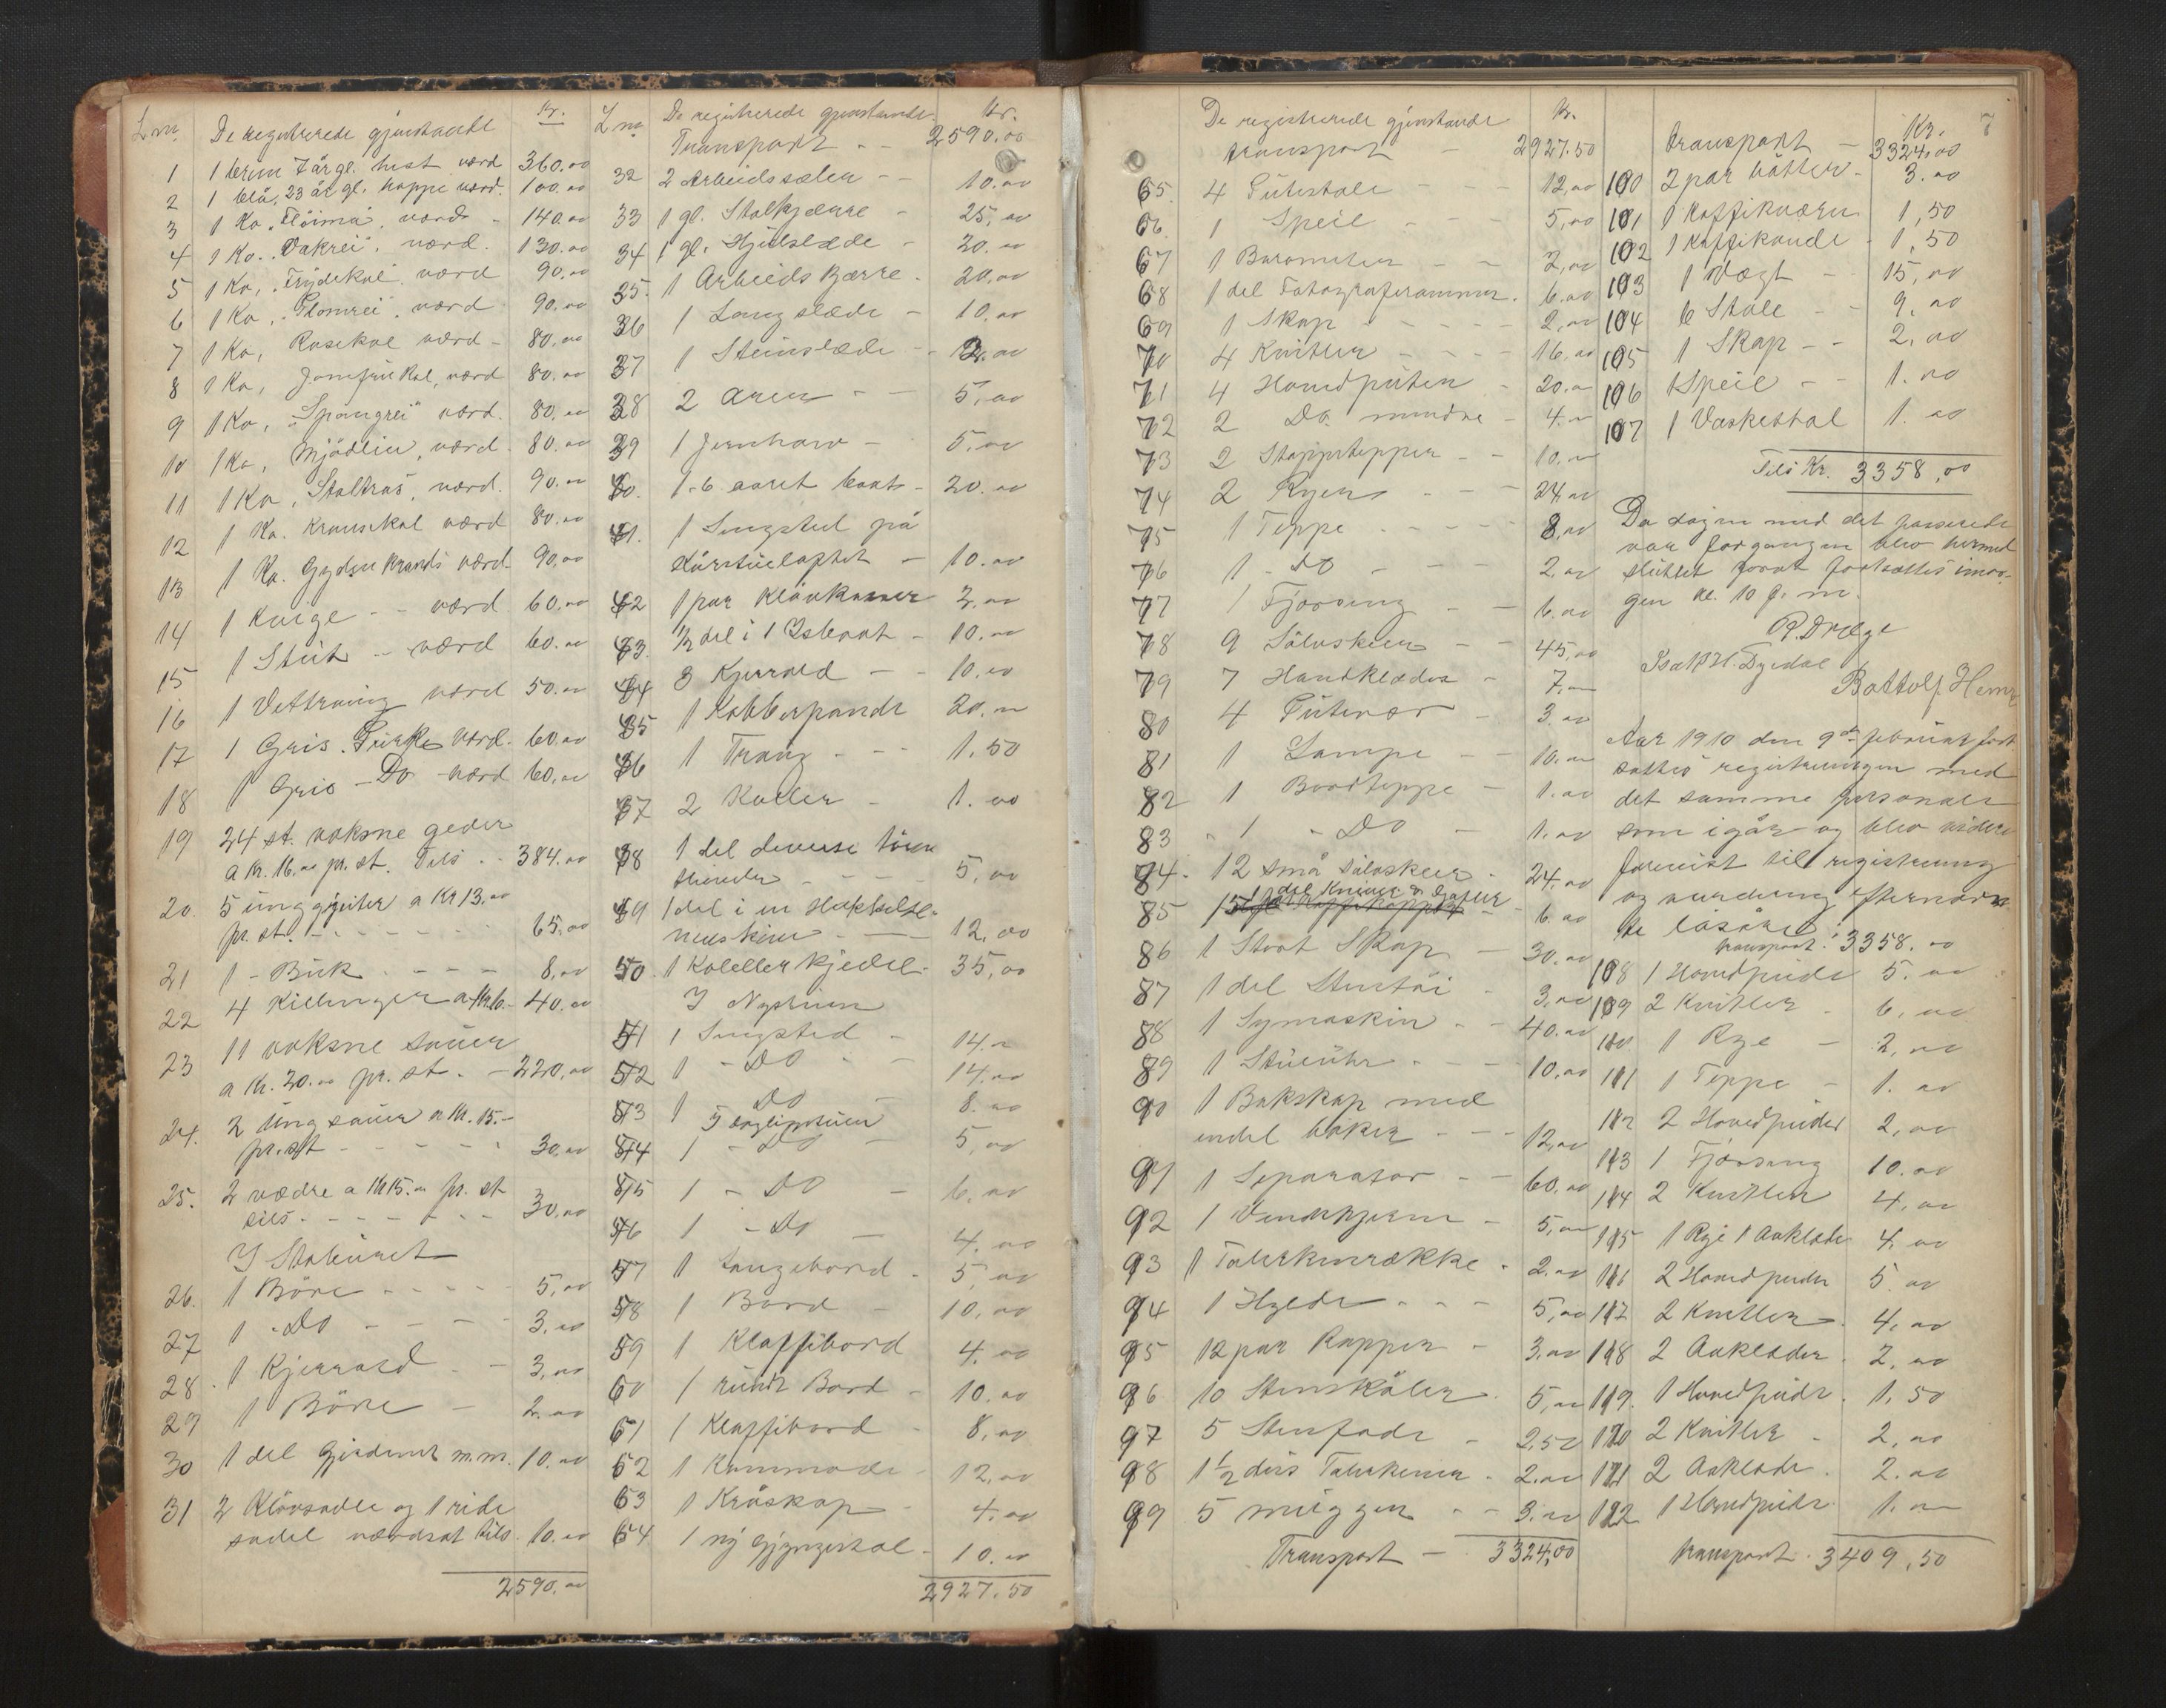 L nr. De registrerede gjenstande Kr.
1 1 brun 7 år gl. hest værd 360.00
2 1 blå, 23 år gl. hoppe værd. 100.00
3 1 Ko "Fløima", værd 140.00
4 1 Ko. "Vakrei", værd. 130.00
5 1 Ko, "Frydekol" værd 90.00
6 1 Ko, "Blomrei", værd 90.00
7 1 Ko, Rosekol værd - 80.00
8 1 Ko, Jomfrukol, værd 80.00
9 1 Ko, "Spangrei" værd. 80.00
10 1 Ko, Mjødlin, værd. 80.00
11 1 Ko, Staltrøs, værd. 90.00
12 1 Ko. Kransekol værd 80.00
13 1 Ko. Gyldenkrands værd 90,00
14 1 Kvige - - værd 60.00
15 1 Stut - værd 60.00
16 1 Vettraing værd 50.00
17 1 Gris. Purke værd. 60.00
18 1 Gris - Do værd 60.00
19 24 st. voksne geder
a kr. 16.00 pr. st. Tils . . 384.00
20. 5 unggjeiter a Kr 13.00
pr. st. - - - - 65.00
21 1 - Buk . - - - 8,00
22 4 Killinger a Kr 10.- 40.00
23 11 voksne sauer
a kr. 20.00 pr. st. - 220,00
24. 2 ung sauer a Kr. 15.-
pr. st - - - - 30,00
25. 2 vædre a Kr 15.00 pr. st
tils. - - - - - 30,00
I Staburet
26. 1 Böre - - - - 5,00
27 1 - Do - - - - 3.00
28. 1 Kjerrald - - 3,00
29 1 Böre - 2.00
30 1 del Gjerdener m.m. 10.00
31 2 Kløvsadle og 1 ride
sadel værdsat tils. 10.00
2590.00
L nr. De registrerede gjenstande Kr.
Transport . - 2590.00
32 2 Arbeidssæler - - 10.00
33 1 gl. Stolkjærre - 25,00
34 1 gl. Hjulslæde - 20.00
35. 1 Arbeids Kjærre . 20,00
36 1 Langslæde - 10.00
37 1 Steinslæde - - 2.00
38 2 Arer - - 5.00
39 1 Jernharv - 5.00
40. 1-6 aaret baat - 20.00
41. 1 Sengsted på
Kårstueloftet - 10.00
42 1 par Kløvkasser 2.00
43. ½ del i 1 Isbaat - 10.00
44 3 Kjerrald - - 10.00
45 1 Kobberpande 20.00
46 1 Traug - - - 1.50
47 2 Koller - 1.00
48 1 del diverse töien
- - - - 5,00
49 1 del i en Hakkelse
maskine - - 12,00
50. 1 Kolellerkjedel - 35,00
I Nystuen
51 1 Sengsted - 14.00
52 1 - Do - - 14.00
53 1 Do 8.00
I daglistuen
54 1 - Do 5,00
55 1 - Do - 6.00
56 1 - Do - 4.00
57 1 Langebord - 5,00
58 1 Bord - 10,00
59 1 Klaffibord 4.00
60 1 rundt Bord - 10.00
61 1 Klaffibord - 8,00
62 1 Kommode - 12,00
63 1 Kråskap - 4.00
64 1 ny Gjyngestol - 10.00
2927.50
De registrerede gjenstande Kr.
transport - 2927.50
65. 4 Pütestole - - - 12,00
66. 1 Speil - - 5,00
67 1 Barometer - - 2,00
68 1 del Fotografirammer. 6.00
69 1 Skap - - - - - 2,00
70 4 Knitler - - - - 16.00
71 4 Hovedputer - 20.00
72 2 Do. mindre - 4.00
73 2 Stoppetepper - - 10.00
74 2 Ryer - - - 24.00
75 1 Teppe - - - - - 8.00
76 1 - Do - - - 2.00
77 1 Fjørseng - - 6.00
78 9 Sölvskeer - - 45,00
79 7 Handklæder - 7.00
80 4 Putevar - 3.00
81 1 Lampe - - 10.00
82 1 Bordteppe - 1.00
83 - 1 - Do - 1.00
84. 12 små sölvskeer - 24.00
85 1 del Kniver & Gafler - 6.00
86 1 Stort Skap - 30.00
87 1 del Stentöi - 3.00
88 1 Symaskin - - 40.00
89 1 Stueuhr - - - 10.00
90 1 Bokskap med
endel böker - - - 12,00
91 1 Separator - - 60.00
92 1 Vendekjerne - 5,00
93 1 Talerkenrække . 2.00
94 1 Hylde - - - 5,00
95 12 par Kopper - 3.00
96 10 Stenskåler . 5,00
97 5 Stenfade - 2,50
98 1½ dus Talerkener . 2.00
99 5 muggen - - 3.00
Transport - 3324,00
7
Kr.
transport - 3324.00
100 2 par båtter - 3.00
101 1 Kaffikværn 1,50
102 1 Kaffikande - 1.50
103 1 Vægt - - 15,00
104 6 Stole - - 9.00
105 1 Skap - - 2.00
106 1 Speil - - 1.00
107 1 Vaskestol 1.00
Tils Kr. 3358.00
Da dagen med det passerede
var forgangen blev hermed
sluttet forat fortsættes imor-
gen kl. 10 f. m.
R. Drege
H. Dyrdal
Bottolf
Aar 1910 den 9de februar fort
sattes registreringen med
det samme personale
som igår og blev videre
forevist till registrering
og vurdering efternævn
te lösöre:
transport: 3358.00
108 1 Hovedpude 5.00
109 2 Knitler - 6,00
110. 1 Rye - 2,00
111 1 Teppe - 1.00
112 2 Hovedpuder 2,00
113 1 Fjørseng 10.00
114 2 Knitler 4,00
115 1 Rye 1 Aaklæde 4.00
116 2 Hovedpuder 5.00
117 2 Knitler - 4.00
118 2 Aaklæder . 2.00
119. 1 Hovedpude . 1.50
120 2 Knitler - 2,00
121 2 Aaklæde . 2.00
122 1 Hovedpude 1.00
transport . 3409.50